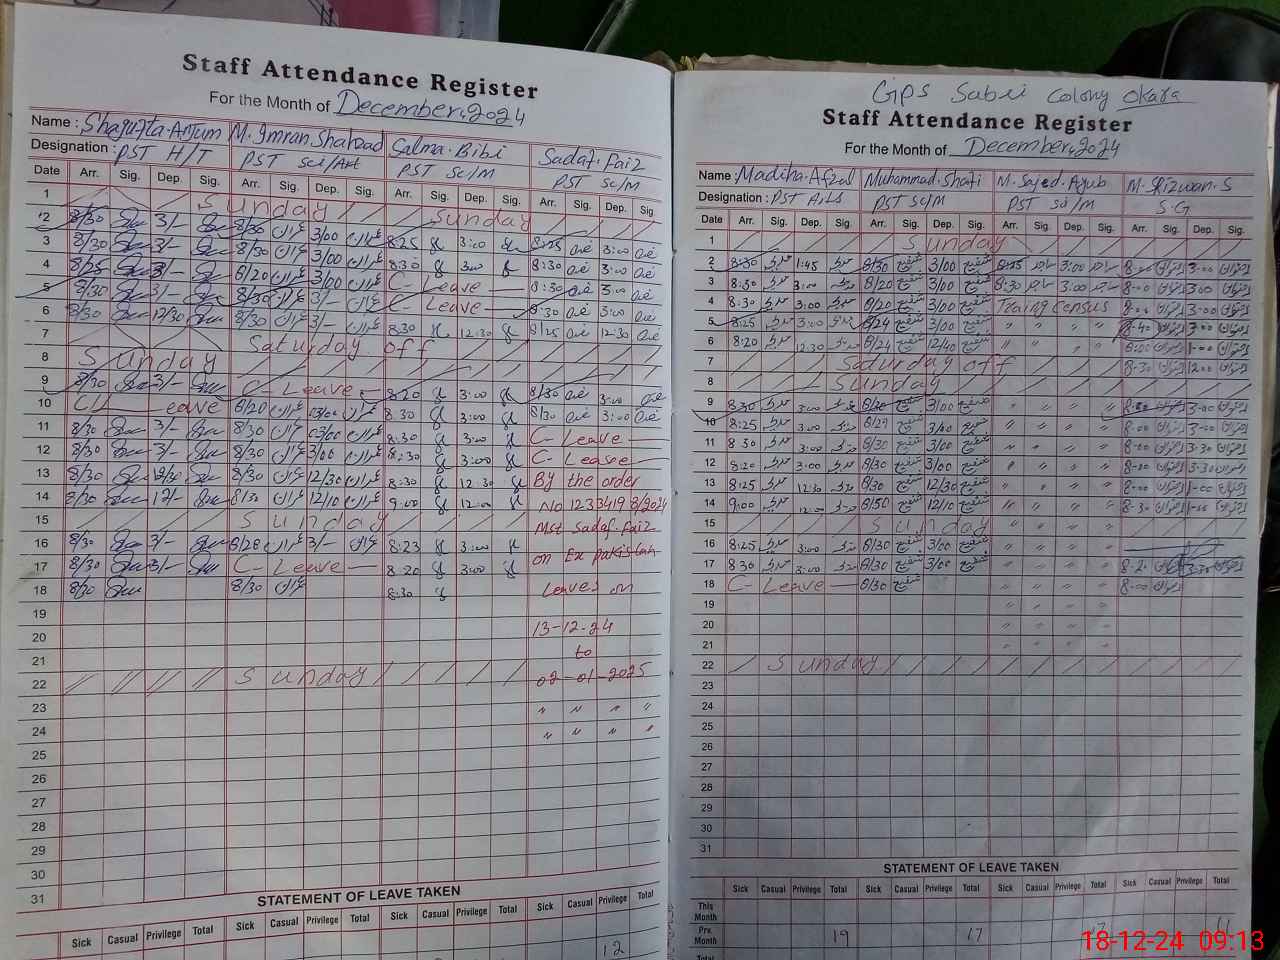 Staff Attendance Register
For the Month of December, 2024
Name : Shagufta Anjum M. Imran Shahzad Salma Bibi Sadaf Faiz
Designation : PST H/T PST Sci/Art PST Sc/M PST Sc/M
Date Arr. Sig. Dep. Sig. Arr. Sig. Dep. Sig. Arr. Sig. Dep. Sig. Arr. Sig. Dep. Sig.
1 Sunday Sunday
2 8/30 3/- 8/30 3/00 8:25 3:00 8:25 3:00
3 8/30 3/- 8/30 3/00 8:30 3:00 8:30 3:00
4 8/25 3/- 8/20 3/00 C- Leave 8:30 3:00
5 8/30 3/- 8/30 3/- C- Leave 8:30 3:00
6 8/30 12/30 8/30 3/- 8:30 12:30 8/25 12:30
7 Saturday off
8 Sunday
9 8/30 3/- C- Leave 8:20 3:00 8/30 3:00
10 C Leave 8/20 03/00 8:30 3:00 8/30 3:00
11 8/30 3/- 8/30 03/00 8:30 3:00 C- Leave
12 8/30 3/- 8/30 3/00 8:30 3:00 C- Leave
13 8/30 12/30 8/30 12/30 8:30 12:30 By the order
14 8/30 12/- 8/30 12/10 9:00 12:00 No 1233419 8/2024
15 Sunday Mst Sadaf Faiz
16 8/30 3/- 8/28 3/- 8:23 3:00 on Ex pakistan
17 8/30 3/- C- Leave 8:20 3:00
18 8/30 8/30 8:30 Leaves on
19
20 13-12-24
21 to
22 Sunday 02-01-2025
23 " " " "
24 " " " "
25
26
27
28
29
30
31
STATEMENT OF LEAVE TAKEN
Sick Casual Privilege Total Sick Casual Privilege Total Sick Casual Privilege Total Sick Casual Privilege Total
12
GPS Sabri Colony Okara
Staff Attendance Register
For the Month of December, 2024
Name : Madiha Afzal Muhammad Shafi M. Sajed Ayub M. Rizwan S
Designation : PST Arts PST Sc/M PST Sc/M S.G
Date Arr. Sig. Dep. Sig. Arr. Sig. Dep. Sig. Arr. Sig. Dep. Sig. Arr. Sig. Dep. Sig.
1 Sunday
2 8:30 1:45 8/30 شفیع 3/00 شفیع 8:25 3:00 8:00 3:00
3 8:30 3:00 8/20 شفیع 3/00 شفیع 8:30 3:00 8:00 3:00
4 8:30 3:00 8/20 شفیع 3/00 شفیع Traing Census 8:00 3:00
5 8:25 3:00 8/24 شفیع 3/00 شفیع " " " " 8:40 3:00
6 8:20 12:30 8/24 شفیع 12/40 شفیع " " " " 8:00 1:00
7 Saturday off 8:30 12:00
8 Sunday
9 8:30 3:00 8/20 شفیع 3/00 شفیع " " " " 8:00 3:00
10 8:25 3:00 8/29 شفیع 3/00 شفیع " " " " 8:00 3:00
11 8:30 3:00 8/30 شفیع 3/00 شفیع " " " " 8:00 3:30
12 8:20 3:00 8/30 شفیع 3/00 شفیع " " " " 8:00 3:30
13 8:25 12:30 8/30 شفیع 12/30 شفیع " " " " 8:00 1:00
14 9:00 12:00 8/50 شفیع 12/10 شفیع " " " " 8:30 1:00
15 Sunday " " " "
16 8:25 3:00 8/30 شفیع 3/00 شفیع " " " "
17 8:30 3:00 8/30 شفیع 3/00 شفیع " " " " 8:20 3:30
18 C- Leave 8/30 شفیع " " " " 8:00
19 " " " "
20 " " " "
21 " " " "
22 Sunday
23
24
25
26
27
28
29
30
31
STATEMENT OF LEAVE TAKEN
Sick Casual Privilege Total Sick Casual Privilege Total Sick Casual Privilege Total Sick Casual Privilege Total
This Month
Prv. Month 19 17 11
Total
18-12-24 09:13